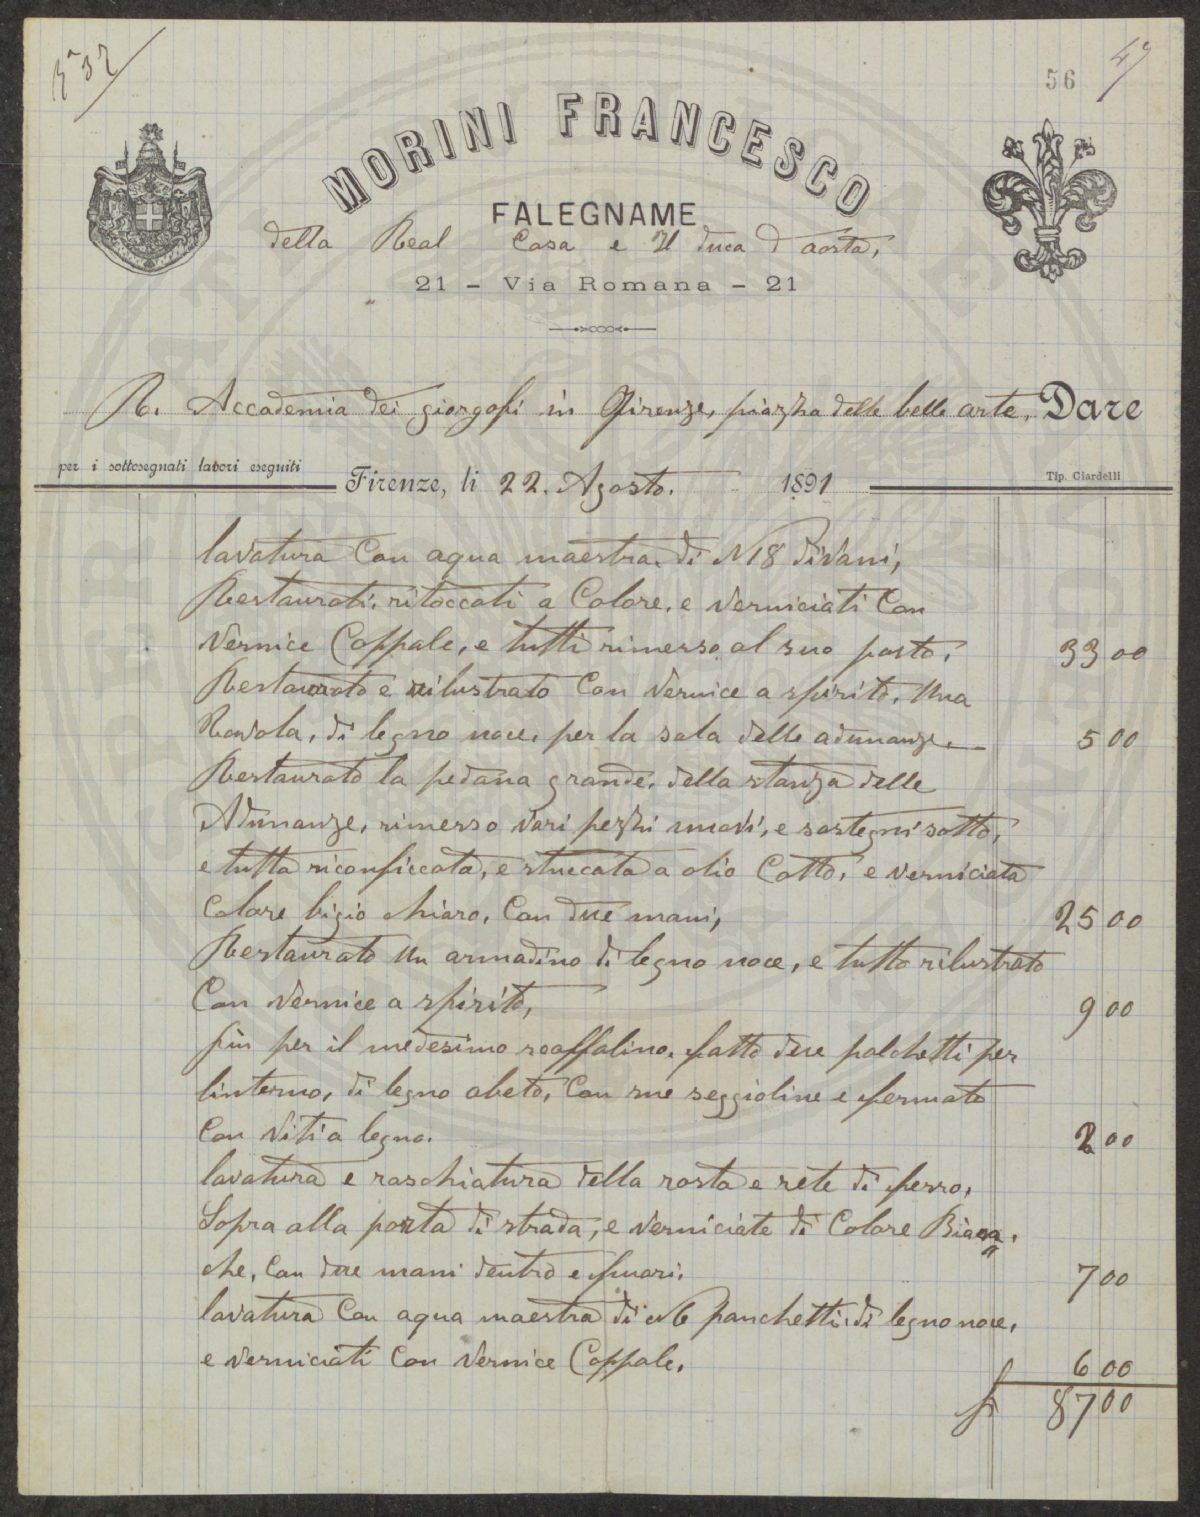 N° 32
56
49
MORINI FRANCESCO
FALEGNAME
della Real Casa e Il duca d aosta,
21 - Via Romana - 21
R. Accademia dei giorgofi in Firenze, piazza delle belle arte, Dare
per i sottosegnati lavori eseguiti
Firenze, li 22. Agosto. 1891
Tip. Ciardelli
lavatura Con aqua maestra di N 18 divani,
Restaurati, ritoccati a Colore, e verniciati Con
vernice Coppale, e tutti rimerso al suo posto, 33 00
Restaurato e rilustrato Con vernice a spirito, Una
Tavola, di legno noce, per la sala delle adunanze 5 00
Restaurato la pedana grande, della stanza delle
Adunanze, rimerso vari pezzi nuovi, e sostegni sotto,
e tutta riconficcata, e stuccata a olio Cotto, e verniciata
Colore bigio chiaro, Con due mani, 25 00
Restaurato Un armadino di legno noce, e tutto rilustrato
Con vernice a spirito, 9 00
più per il medesimo scaffalino, fatto due palchetti per
linterno, di legno abeto, Con sue seggioline e fermato
Con viti a legno. 2 00
lavatura e raschiatura della rosta e rete di ferro,
Sopra alla porta di strada, e verniciate di Colore Biacca,
che, Con due mani dentro e fuori. 7 00
lavatura Con aqua maestra di N 6 panchetti di legno noce,
e verniciati Con vernice Coppale, 6 00
£ 87 00